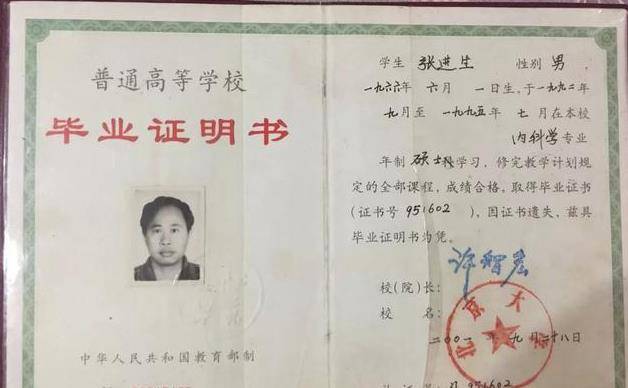 普通高等学校
毕业证明书
中华人民共和国教育部制
学生 张进生 性别 男
一九六六年 六月 一日生,于一九九二年
九月至 一九九五年 七月在本校
内科学专业
年制 硕士科学习,修完教学计划规
定的全部课程,成绩合格,取得毕业证书
(证书号 951602 ),因证书遗失,兹具
毕业证明书为凭。
校(院)长:
校 名:
北京大学
二〇〇一年九月二十八日
951602